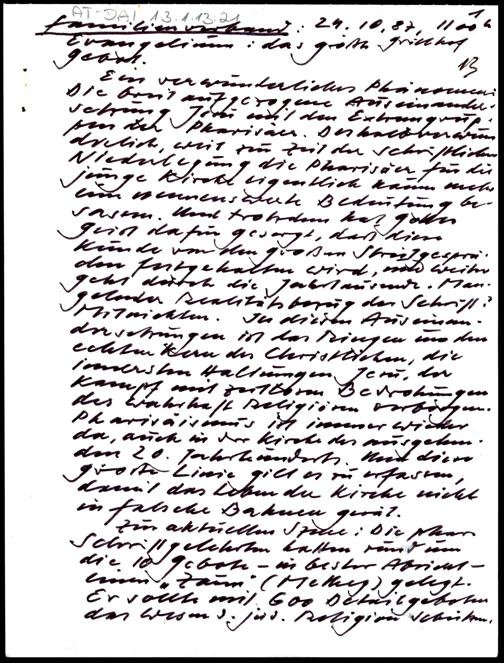 AT-DAI 13.1.13.21
Familienverband: 24.10.87, 11 00 h
Evangelium: das große
Gebot.
13
Ein verwunderliches Phänomen:
Die breit aufgezogene Auseinander-
setzung Jesu mit den Extremgrup-
pen der Pharisäer. Deshalb verwun-
derlich, weil zur Zeit der schriftlichen
Niederlegung die Pharisäer für die
junge Kirche eigentlich kaum mehr
eine nennenswerte Bedeutung be-
sassen. Und trotzdem hat Gottes
Geist dafür gesorgt, daß diese
Kunde von den großen Streitgesprä-
chen festgehalten wird, und weiter
geht durch die Jahrtausende. Man-
gelnder Realitätsbezug der Schrift?
Mitnichten. In diesen Auseinan-
dersetzungen ist das Ringen um den
echten Kern des Christlichen, die
innersten Haltungen Jesu, der
Kampf mit zeitlosen Bedrohungen
des wahrhaft Religiösen verborgen.
Pharisäismus ist immer wieder
da, auch in der Kirche des ausgehen-
den 20. Jahrhunderts. Und diese
große Linie gilt es zu erfassen,
damit das Leben der Kirche nicht
in falsche Bahnen gerät.
Zur aktuellen Szene: Die phar.
Schriftgelehrten hatten rund um
die 10 Gebote - in bester Absicht -
einen "Zaun" gelegt.
Er sollte mit 600 Detailgeboten
das Wesen d. jüd. Religion schützen.